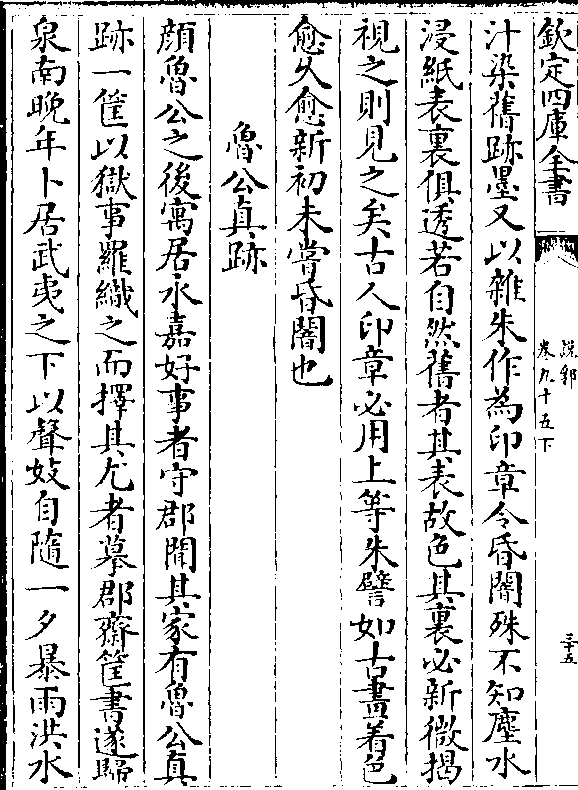 欽定四庫全書
說郛
卷九十五下
三十五
汁染舊跡墨又以雜朱作為印章令昏闇殊不知塵水
浸紙表裏俱透若自然舊者其表故色其裏必新微揭
視之則見之矣古人印章必用上等朱譬如古畫着色
愈乆愈新初未嘗昏闇也
魯公真跡
顔魯公之後寓居永嘉好事者守郡聞其家有魯公真
跡一筐以獄事羅織之而擇其尤者摹郡齋筐書遂歸
泉南晩年卜居武夷之下以聲妓自隨一夕暴雨洪水